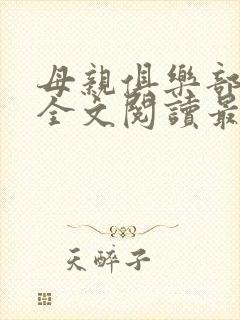 母親俱樂部
全文閱讀最
天醉子